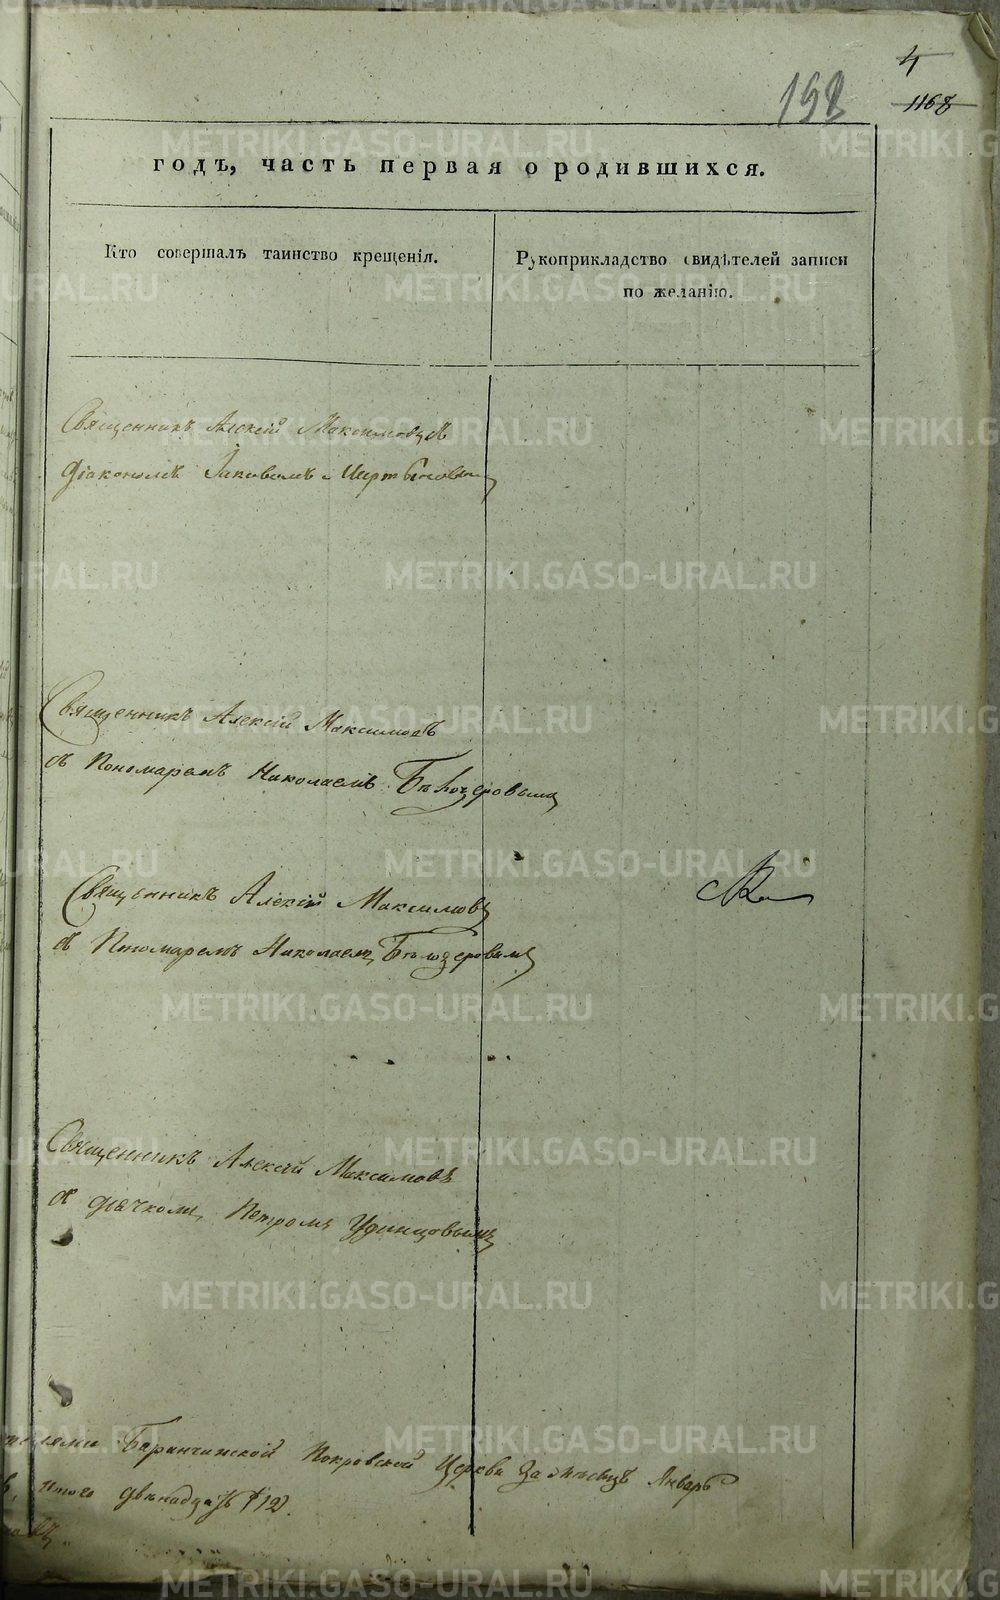 4
198
1168
годъ, часть первая о родившихся.
Кто совершалъ таинство крещенія.
Рукоприкладство свидѣтелей записи
по желанію.
Священникъ Алексій Максимовъ съ
діакономъ Іаковомъ
Священникъ Алексій Максимовъ
съ Пономаремъ Николаемъ Бѣлозеровымъ
Священникъ Алексій Максимовъ
съ Пономаремъ Николаемъ Бѣлозеровымъ
Священникъ Алексій Максимовъ
съ дьячкомъ Петромъ Удинцовымъ
Баранчинской Покровской Церкви за мѣсяцъ Январь
итого двѣнадцать 12.
METRIKI.GASO-URAL.RU